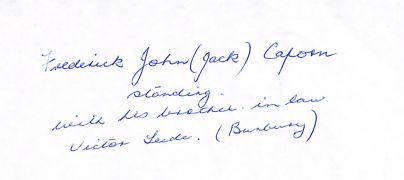 Frederick John (Jack) Caporn
standing.
with his brother in law
Victor Leede. (Bunbury)